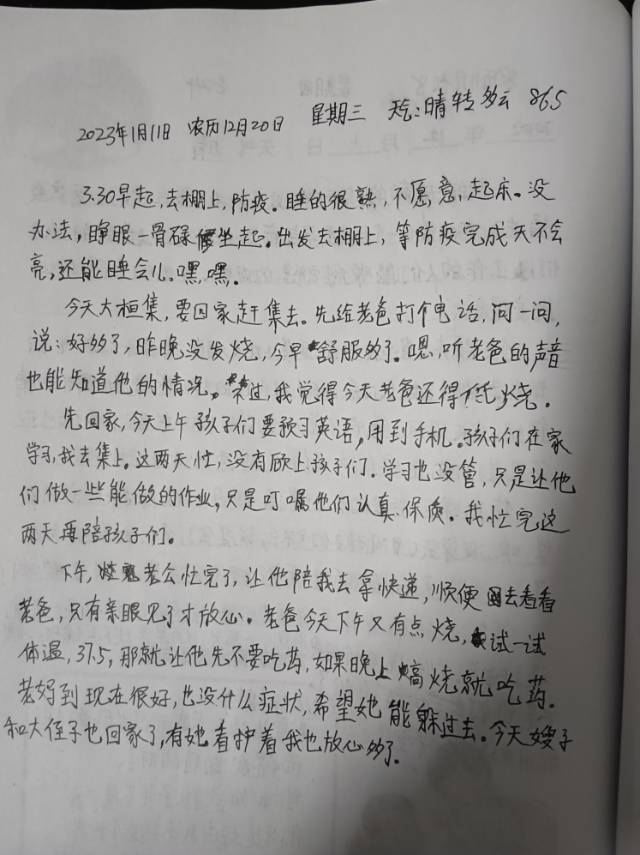 2023年1月11日 农历12月20日 星期三 天气:晴转多云 865
3.30早起,去棚上,防疫。睡的很熟,不愿意,起床。没
办法,睁眼一骨碌坐起。出发去棚上,等防疫完成天不会
亮,还能睡会儿。嘿,嘿。
今天大桓集,要回家赶集去。先给老爸打个电话,问一问,
说:好多了,昨晚没发烧,今早舒服多了。嗯,听老爸的声音
也能知道他的情况。不过,我觉得今天老爸还得低烧.
先回家,今天上午孩子们要预习英语,用到手机。孩子们在家
学习,我去集上。这两天忙,没有顾上孩子们。学习也没管,只是让他
们做一些能做的作业,只是叮嘱他们认真.保质。我忙完这
两天再陪孩子们。
下午,老公忙完了,让他陪我去拿快递,顺便回去看看
老爸,只有亲眼见了才放心。老爸今天下午又有点烧,试一试
体温,37.5,那就让他先不要吃药,如果晚上高烧就吃药.
老妈到现在很好,也没什么症状,希望她能躲过去。今天嫂子
和大侄子也回家了,有她看护着我也放心多了.